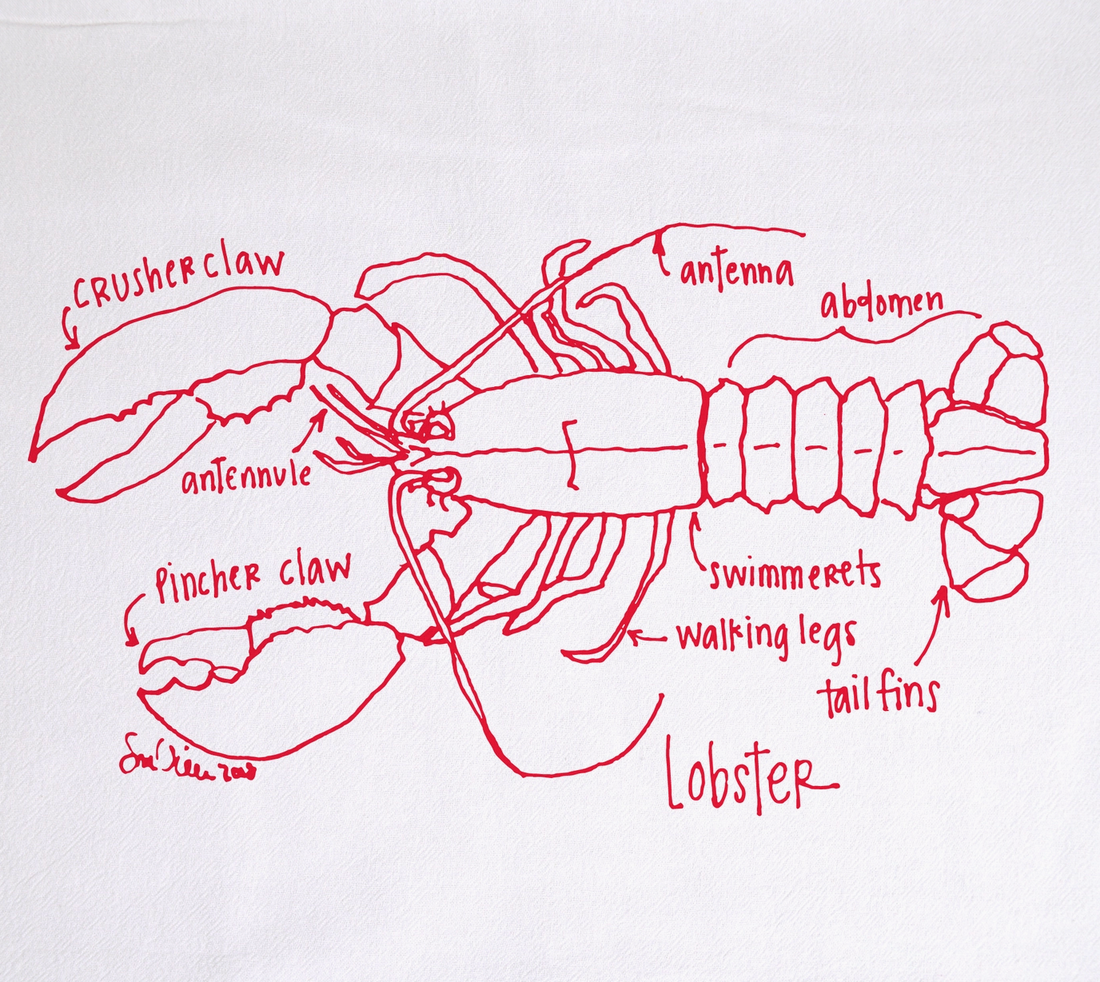 crusher claw
antenna
abdomen
antennule
pincher claw
swimmerets
walking legs
tail fins
lobster